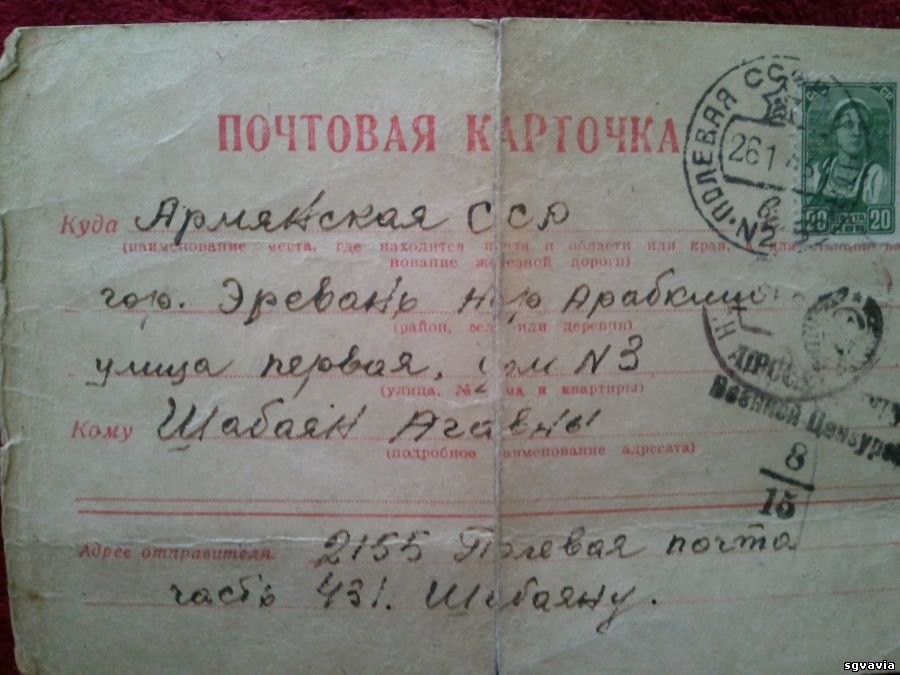 ПОЧТОВАЯ КАРТОЧКА
ПОЛЕВАЯ
261
СС СР
20 ПОЧТА КОП 20
Куда Армянская ССР
(наименование места, где находится почта и области или края, а для станций
нование железной дороги)
гор. Эревань Нор Арабкир
(район, село или деревня)
улица первая, дом N3
(улица, № дома и квартиры)
Кому Шабаян Агавны
(подробное наименование адресата)
Военной Цензурой
8
15
Адрес отправителя. 2155 Полевая почта
часть 431. Шабаяну.
sgvavia